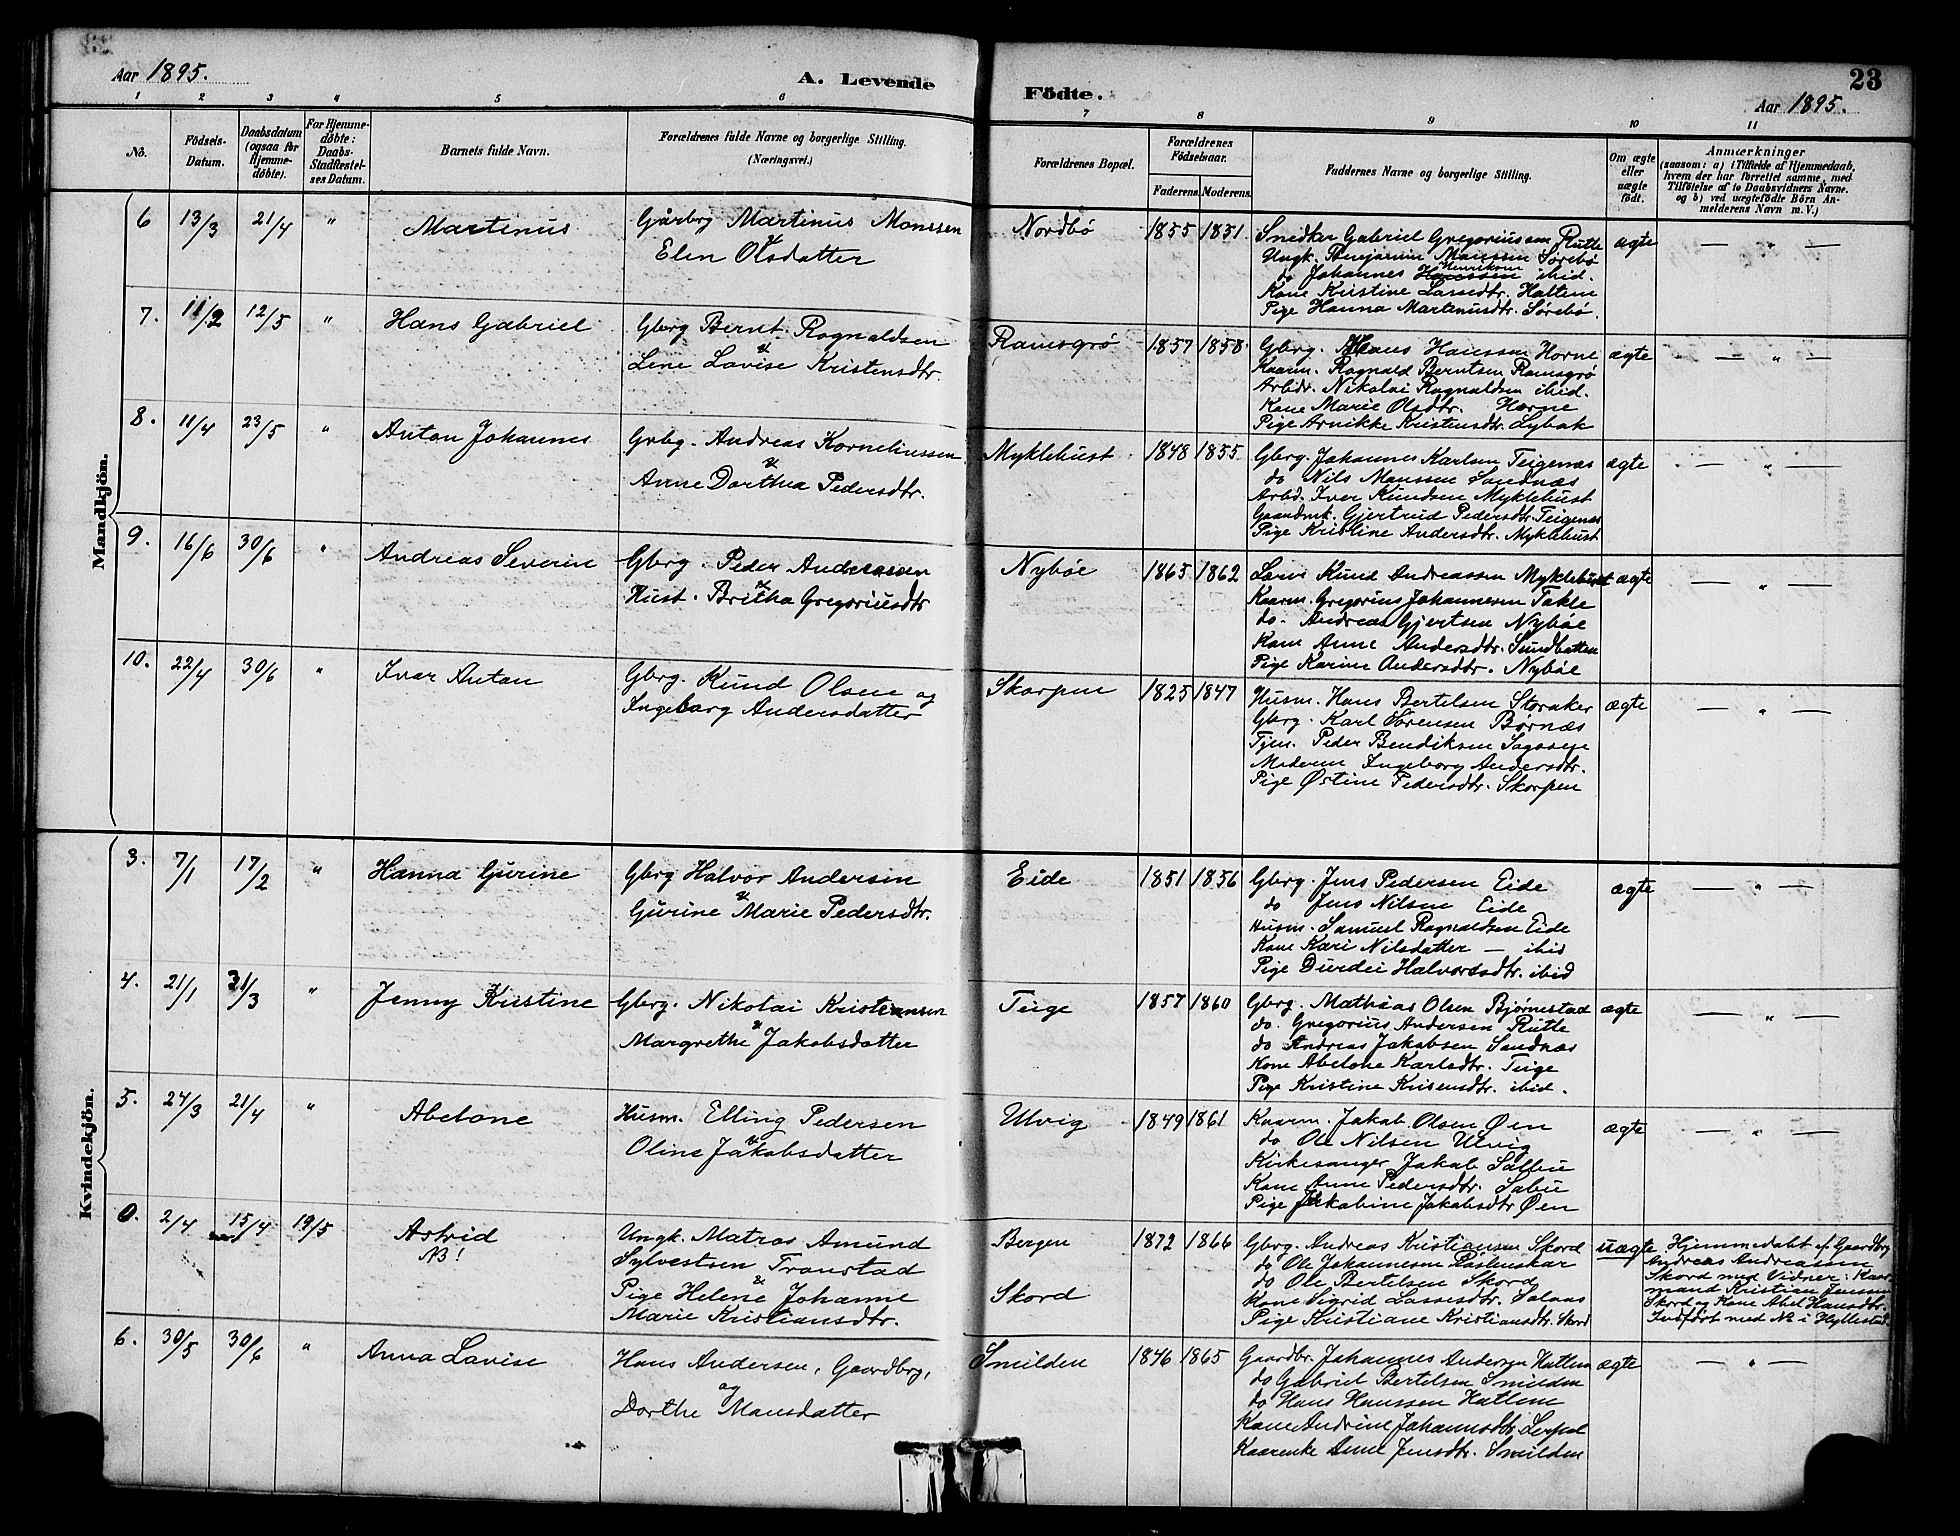 Aar 1895.
A. Levende
Födte.
23
Aar 1895.
1 2 3 4 5 6 7 8 9 10 11
No.
Födsels-
Datum.
Daabsdatum
(ogsaa for
Hjemme-
döbte).
For Hjemme-
döbte:
Daabs-
Stadfæstel-
ses Datum.
Barnets fulde Navn.
Forældrenes fulde Navne og borgerlige Stilling.
(Næringsvei.)
Forældrenes Bopæl.
Forældrenes
Födselsaar.
Faderens. Moderens.
Faddernes Navne og borgerlige Stilling.
Om ægte
eller
uægte
födt.
Anmærkninger
(saasom: a) i Tilfælde af Hjemmedaab,
hvem der har forrettet samme, med
Tilföielse af to Daabsvidners Navne.
og b) ved uægtefödte Börn An-
melderens Navn m. V.)
Mandkjön.
6 13/3 21/4 "
Martinus
Gårbrg Martinus Monssen
&
Elen Olsdatter
Nordbø
1855 1851
Snedker Gabriel Gregoriussen Rutle
Ungk. Benjamin Monssen Sørebø
Henriksen
do Johannes Hanssen ibid.
Kone Kristine Lassedtr. Hatlem
Pige Hanna Martinusdtr. Sørebø.
ægte
— " —
7. 11/2 12/5 "
Hans Gabriel
Gbrg Bernt Ragnaldsen
&
Lene Lovise Kristensdtr.
Ramsgrø
1857 1858
Gbrg. Hans Hanssen Horne
Kaarm. Ragnald Berntsen Ramsgrø
Arbdr. Nikolai Ragnaldsen ibid.
Kone Marie Olsdtr. Horne
Pige Arnikke Kristensdtr. Lybak
ægte
— " —
8. 11/4 23/5 "
Anton Johannes
Grbg. Andreas Korneliussen
&
Anne Dorthea Pedersdtr.
Myklebust
1848 1855
Gbrg. Johannes Karlsen Teigenæs
do Nils Monssen Sandnæs
Arbd. Iver Knudsen Myklebust
Gaardmk. Gjertrud Pedersdtr. Teigenæs
Pige Kristine Andersdtr. Myklebust
ægte
— " —
9. 16/6 30/6 "
Andreas Severin
Gbrg. Peder Anderssen
&
Hust. Britha Gregoriusdtr
Nybøe
1865 1862
Knud Andreassen Myklebust
Kaarm. Gregorius Johannesen Takle
do. Andreas Gjertsen Nybøe
Kone Anne Andersdtr. Sundbotten
Pige Karine Andersdtr. Nybøe
ægte
— " —
10. 22/4 30/6 "
Ivar Anton
Gbrg. Knud Olsen og
Ingeborg Andersdatter
Skorpen
1825 1847
Husm. Hans Bertelsen Storaker
Gbrg. Karl Sørensen Børnæs
Tjen. Peder Bendiksen
Moderen Ingeborg Andersdtr.
Pige Østine Pedersdtr. Skorpen
ægte
— " —
Kvindekjön.
3. 7/1 17/2 "
Hanna Gurine
Gbrg Halvor Andersen
&
Gurine Marie Pedersdtr.
Eide
1851 1856
Gbrg. Jens Pedersen Eide
do Jens Nilsen Eide
Husm. Samuel Ragnaldsen Eide
Kone Kari Nilsdatter — ibid
Pige Durdei Halvorsdtr. ibid
ægte
— " —
4. 21/1 31/3 "
Jenny Kristine
Gbrg. Nikolai Kristensen
&
Margrethe Jakobsdatter
Teige
1857 1860
Gbrg. Mathias Olsen Bjørnestad
do. Gregorius Andersen Rutle
do Andreas Jakobsen Sandnæs
Kone Abelone Karlsdtr. Teige
Pige Kristine Krisensdtr. ibid.
ægte
— " —
5. 24/3 21/4 "
Abelone
Husm. Elling Pedersen
&
Oline Jakobsdatter
Ulvig
1849 1861
Kaarm. Jakob Olsen Øen
do Ole Nilsen Ulvig
Kirkesanger Jakob Salbu
Kone Anne Pedersdtr. Salbu
Pige Jakobine Jakobsdtr Øen
ægte
— " —
0. 2/4 15/4 19/5
Astrid
NB!
Ungk. Matros Amund
Sylvestsen Transtad
&
Pige Helene Johanne
Marie Kristiansdtr.
Bergen
Skord
1872 1866
Gbrg. Andreas Kristiansen Skord
do Ole Johannesen
do Ole Bertelsen Skord
Kone Sigrid Lassesdtr. Solaas
Pige Kristiane Kristiansdtr. Skord
uægte
Hjemmedøbt af Gaardbrg
Andreas Andreassen
Skord med Vidner: Kaar-
mand Kristian Jenssen
Skord og Kone Abel Hansdtr.
Indført med No i Hyllestad.
6. 30/5 30/6 "
Anna Lovise
Hans Andersen, Gaardbrg,
og
Dorthe Monsdatter
Smilden
1846 1865
Gaardbr. Johannes Andersen Hatlem
do Gabriel Bertelsen Smilden
do Hans Hanssen Hatlem
Kone Andrine Johannesdtr
Kaarenke Anne Jensdtr. Smilden
ægte
— " —